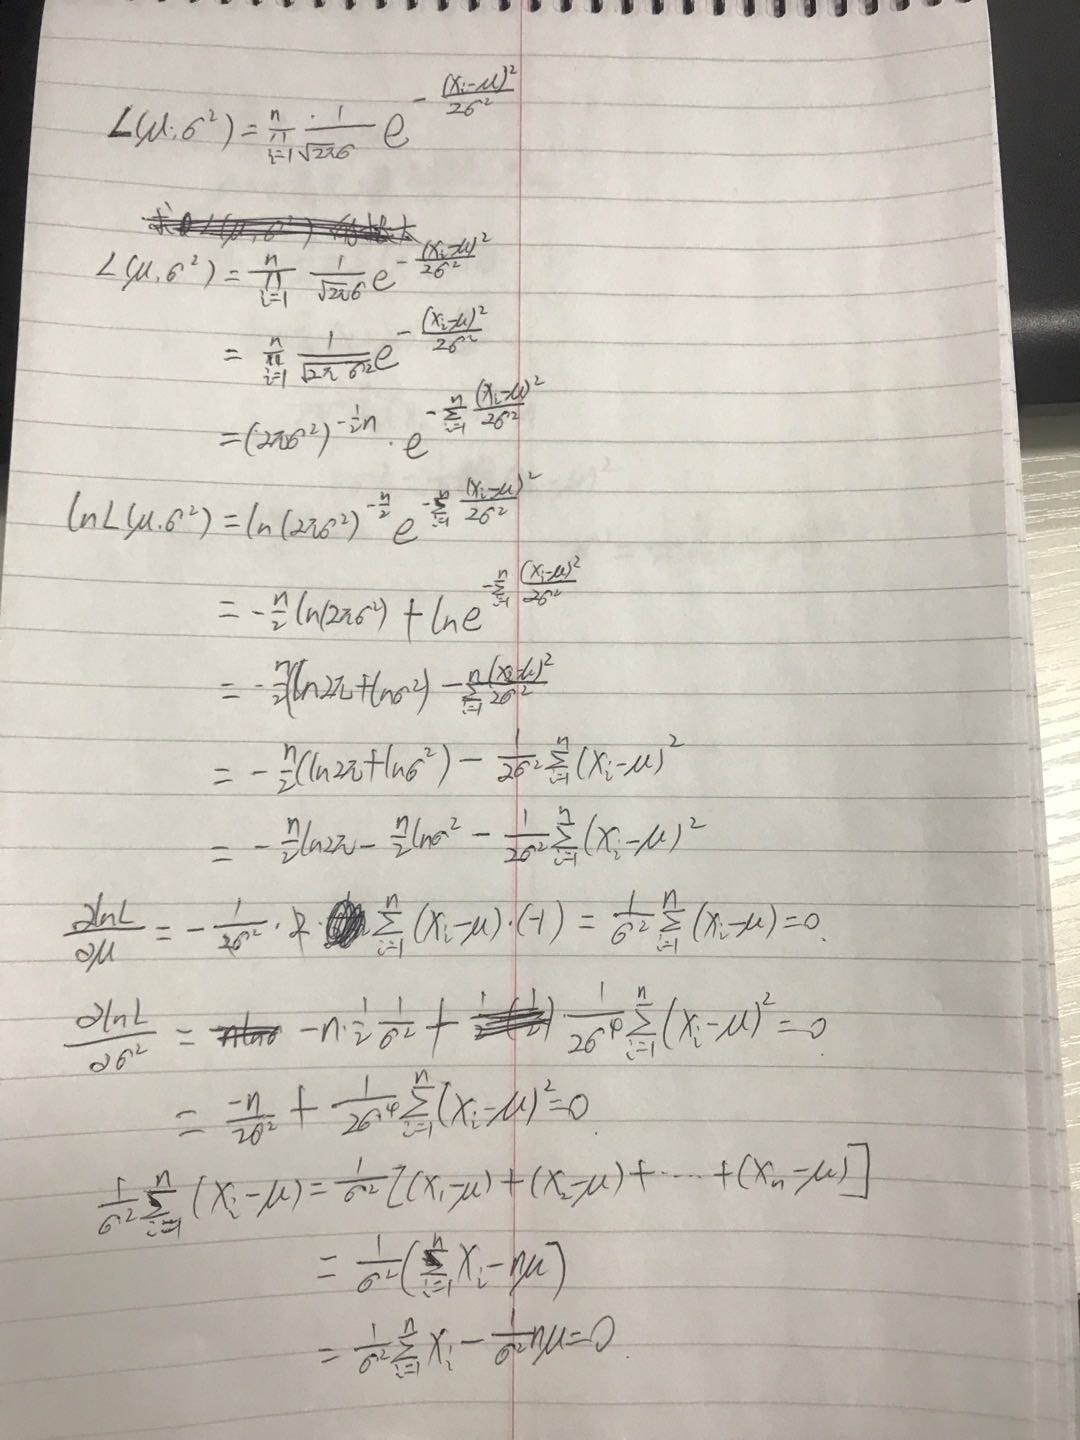 L(μ,σ²) = ∏_{i=1}^{n} 1/(√2π σ) e^{-(x_i-μ)²/2σ²}
L(μ,σ²) = ∏_{i=1}^{n} 1/(√2π σ) e^{-(x_i-μ)²/2σ²}
= ∏_{i=1}^{n} 1/√(2π σ²) e^{-(x_i-μ)²/2σ²}
= (2πσ²)^{-½n} · e^{-∑_{i=1}^{n} (x_i-μ)²/2σ²}
lnL(μ,σ²) = ln(2πσ²)^{-n/2} e^{-∑_{i=1}^{n} (x_i-μ)²/2σ²}
= -n/2 ln(2πσ²) + ln e^{-∑_{i=1}^{n} (x_i-μ)²/2σ²}
= -n/2 (ln2π + lnσ²) - ∑_{i=1}^{n} (x_i-μ)²/2σ²
= -n/2 (ln2π + lnσ²) - 1/2σ² ∑_{i=1}^{n} (x_i-μ)²
= -n/2 ln2π - n/2 lnσ² - 1/2σ² ∑_{i=1}^{n} (x_i-μ)²
∂lnL/∂μ = -1/2σ² · 2 · ∑_{i=1}^{n} (x_i-μ)·(-1) = 1/σ² ∑_{i=1}^{n} (x_i-μ) = 0.
∂lnL/∂σ² = -n · 1/2 1/σ² + · 1/2σ⁴ ∑_{i=1}^{n} (x_i-μ)² = 0
= -n/2σ² + 1/2σ⁴ ∑_{i=1}^{n} (x_i-μ)² = 0.
1/σ² ∑_{i=1}^{n} (x_i-μ) = 1/σ² [(x_1-μ) + (x_2-μ) + ····· + (x_n-μ)]
= 1/σ² (∑_{i=1}^{n} x_i - nμ)
= 1/σ² ∑_{i=1}^{n} x_i - 1/σ² nμ = 0.